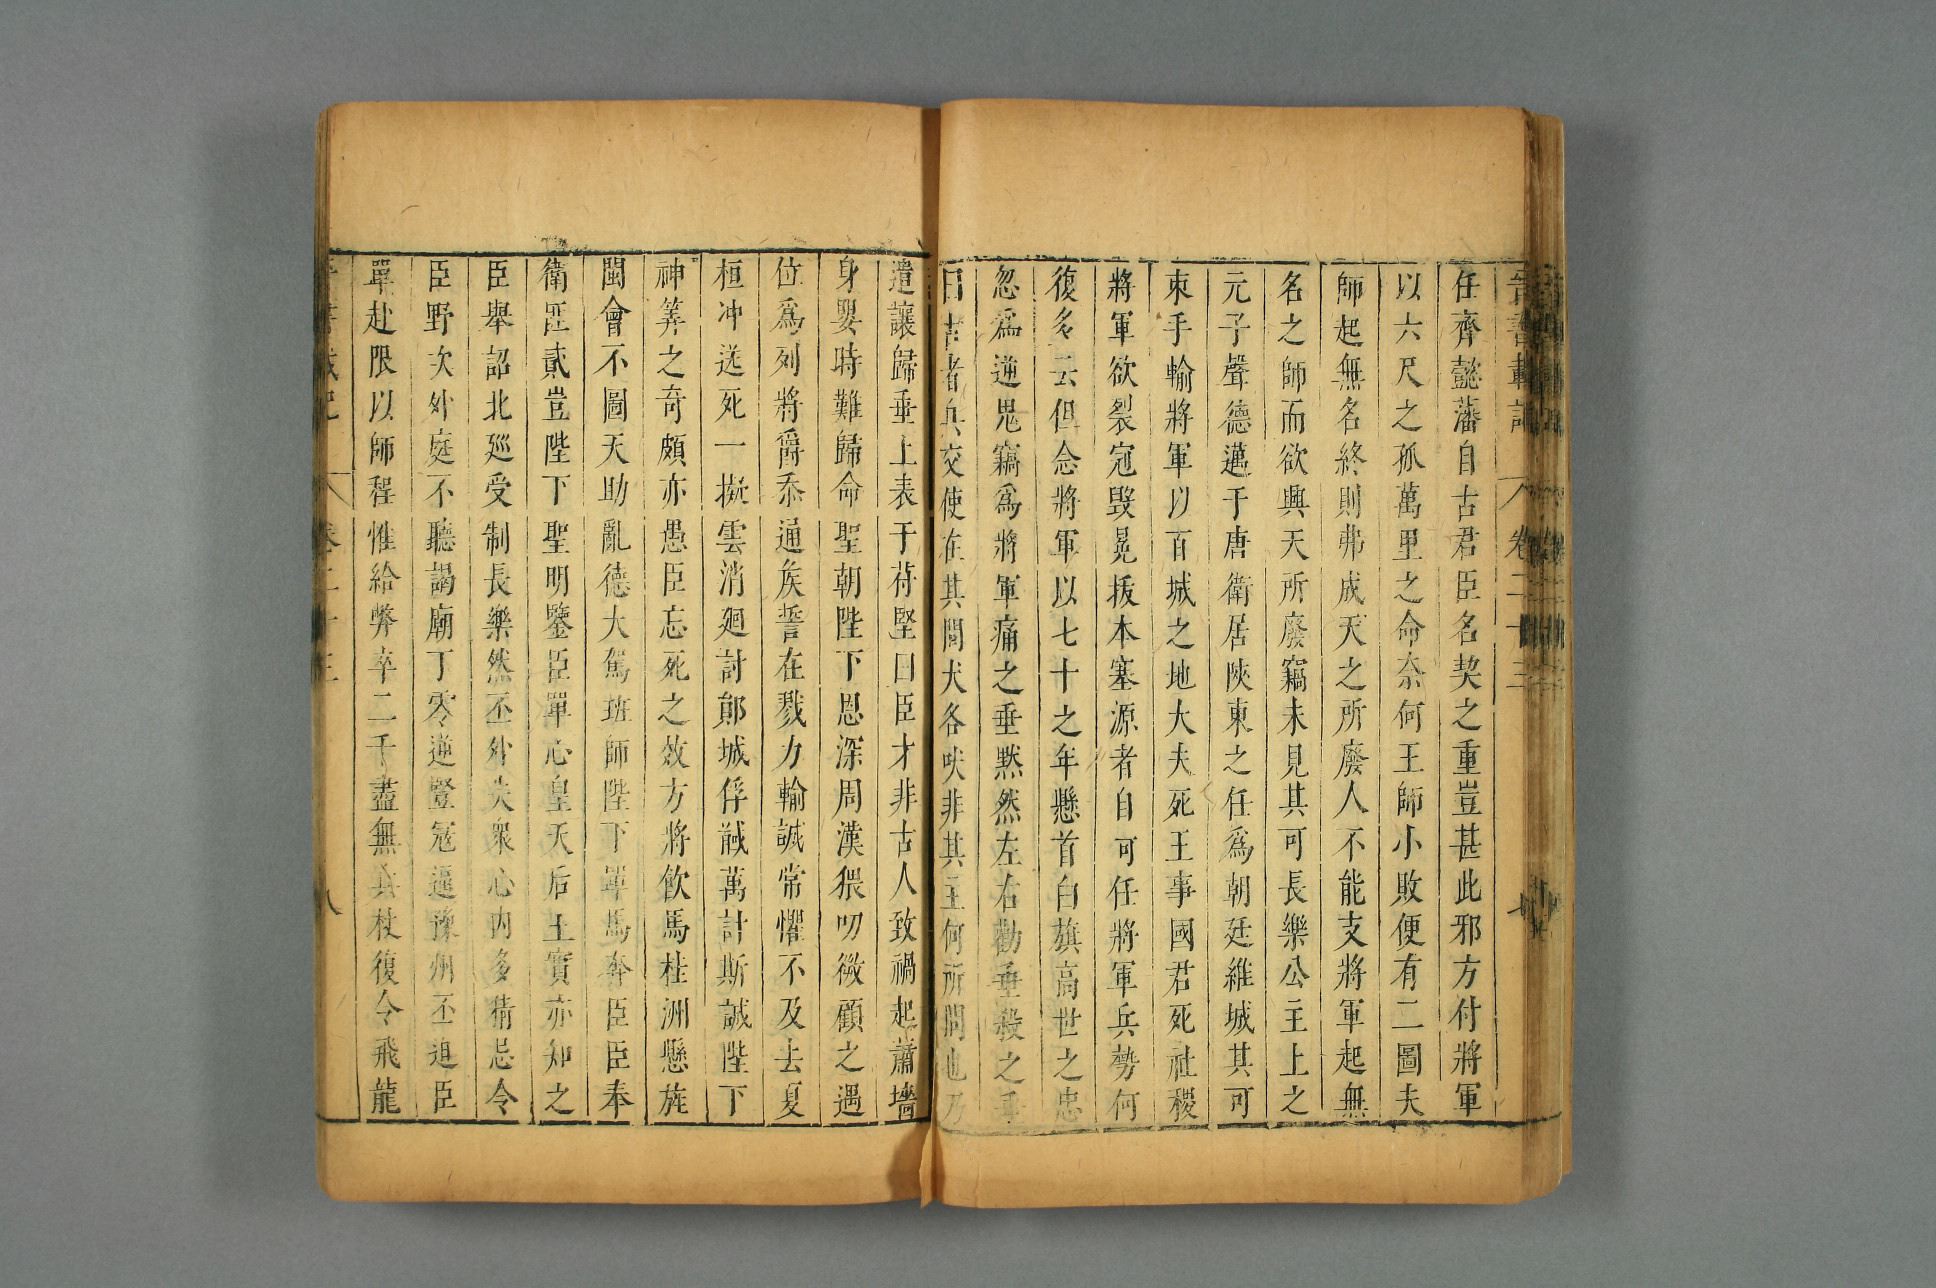 晉書載記 卷二十三
任齊懿藩自古君臣名契之重豈甚此邪方付將軍
以六尺之孤萬里之命奈何王師小敗便有二圖夫
師起無名終則弗成天之所廢人不能支將軍起無
名之師而欲興天所廢竊未見其可長樂公主上之
元子聲德邁于唐衛居陝東之任爲朝廷維城其可
束手輸將軍以百城之地大夫死王事國君死社稷
將軍欲裂冠毀冕拔本塞源者自可任將軍兵勢何
復多云但念將軍以七十之年懸首白旗高世之忠
忽爲逆鬼竊爲將軍痛之垂黙然左右勸垂殺之垂
曰古者兵交使在其間犬各吠非其主何所問也乃
遣讓歸垂上表于苻堅曰臣才非古人致禍起蕭墻
身嬰時難歸命聖朝陛下恩深周漢猥叨微顧之遇
位爲列將爵忝通侯誓在戮力輸誠常懼不及去夏
桓沖送死一擬雲消廻討鄖城俘馘萬計斯誠陛下
神筭之奇頗亦愚臣忘死之效方將飲馬桂洲懸旌
閩會不圖天助亂德大駕班師陛下單馬奔臣臣奉
衛匪貳豈陛下聖明鑒臣單心皇天后土實亦知之
臣舉詔北廵受制長樂然丕外失衆心内多猜忌令
臣野次外庭不聽謁廟丁零逆豎寇逼豫州丕迫臣
單赴限以師程惟給弊卒二千盡無兵杖復令飛龍
晉書載記 卷二十三 八